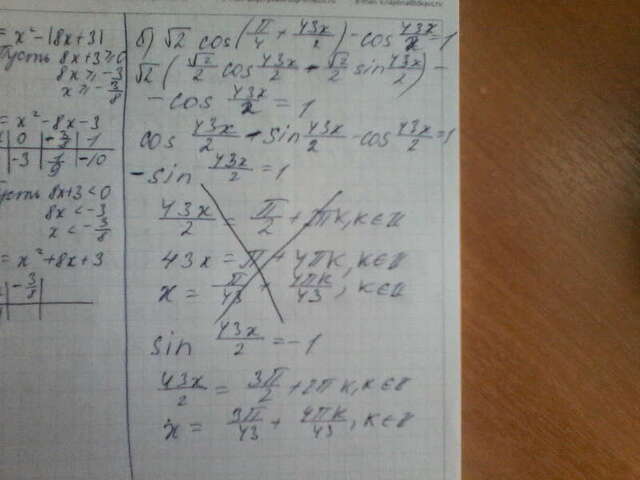 = x² - |8x+3|
Пусть 8x+3 ≥ 0
8x ≥ -3
x ≥ -3/8
= x² - 8x - 3
0 | -3/8 | -1
-3 | | -10
Пусть 8x+3 < 0
8x < -3
x < -3/8
= x² + 8x + 3
-3/8
б) √2 cos(π/4 + 43x/2) - cos 43x/2 = 1
√2 (√2/2 cos 43x/2 - √2/2 sin 43x/2) -
- cos 43x/2 = 1
cos 43x/2 - sin 43x/2 - cos 43x/2 = 1
- sin 43x/2 = 1
43x/2 = π/2 + 2πk, k∈Z
43x = π + 4πk, k∈Z
x = π/43 + 4πk/43, k∈Z
sin 43x/2 = -1
43x/2 = 3π/2 + 2πk, k∈Z
x = 3π/43 + 4πk/43, k∈Z